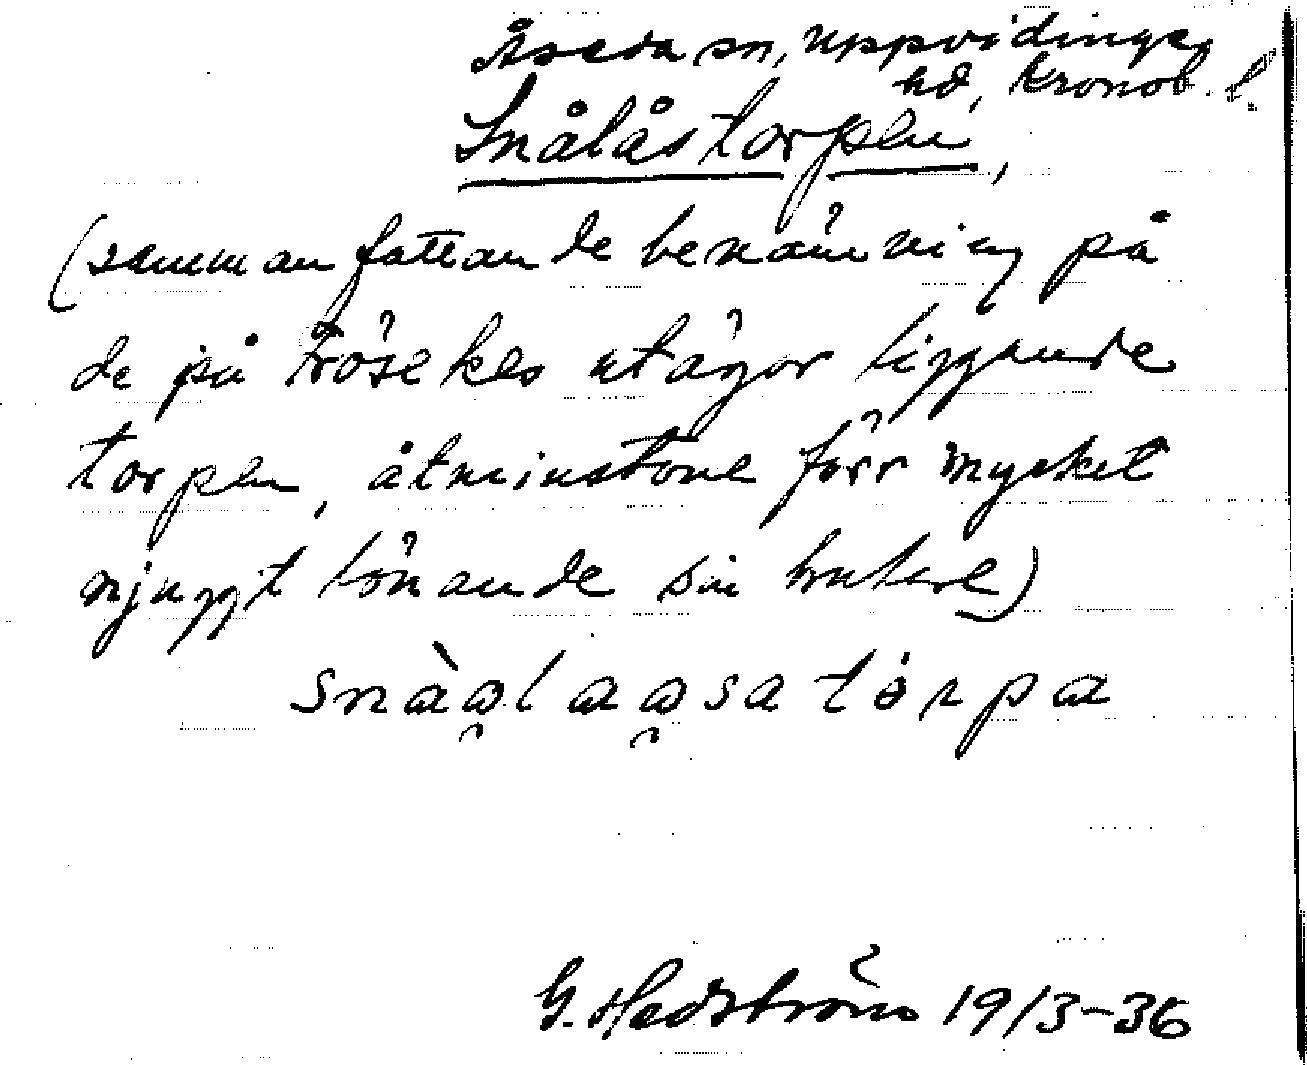 Åseda sn, Uppvidinge
hd, Kronob. l.
Snålåstorpen,
(sammanfattande benämning på
de på Trösekes utägor liggande
torpen, åtminstone förr mycket
njuggt lönande sin brukare)
snàɷlaɷsa tȯrpa
G. Hedström 19/3-36